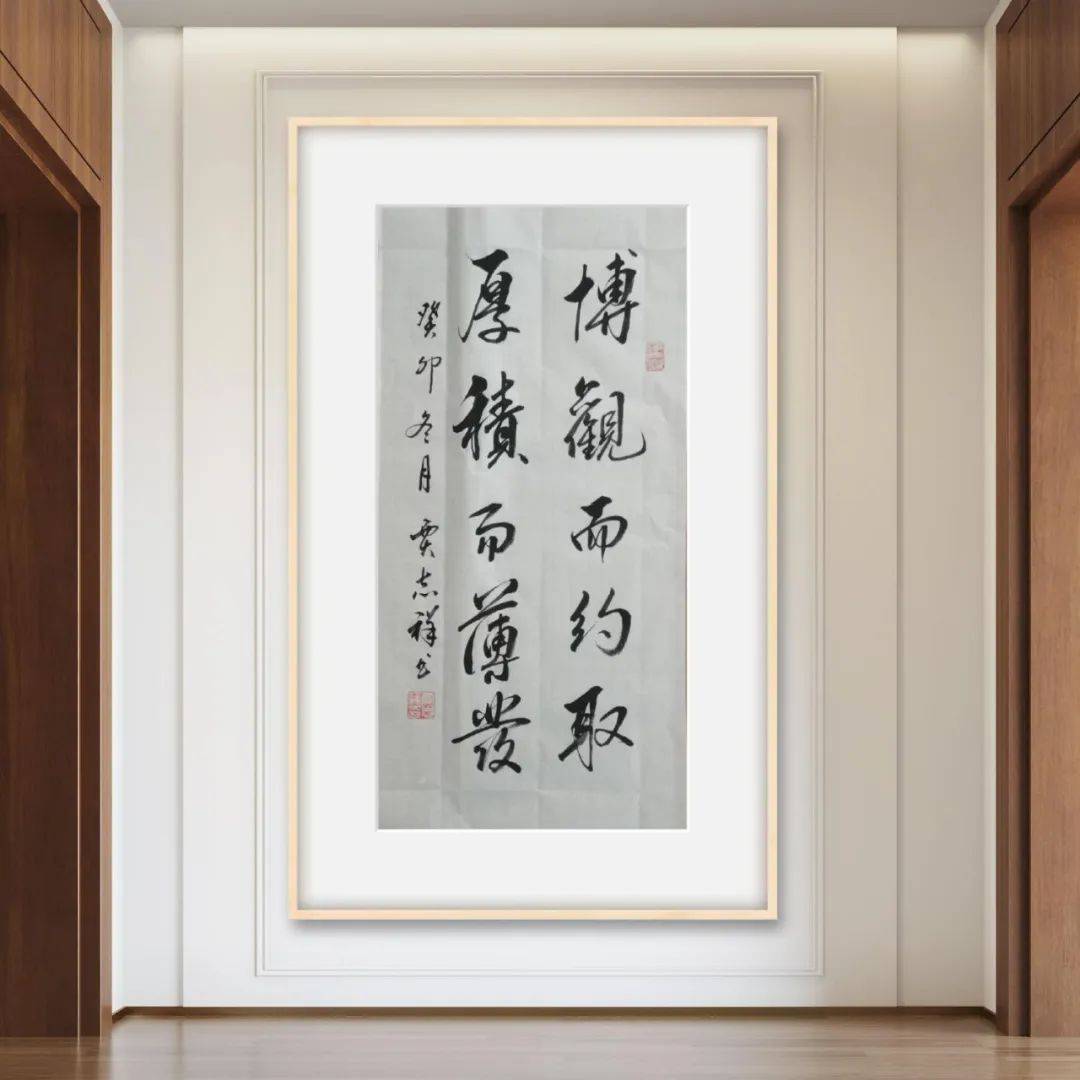 博觀而約取
厚積而薄發
癸卯冬月賈志祥书